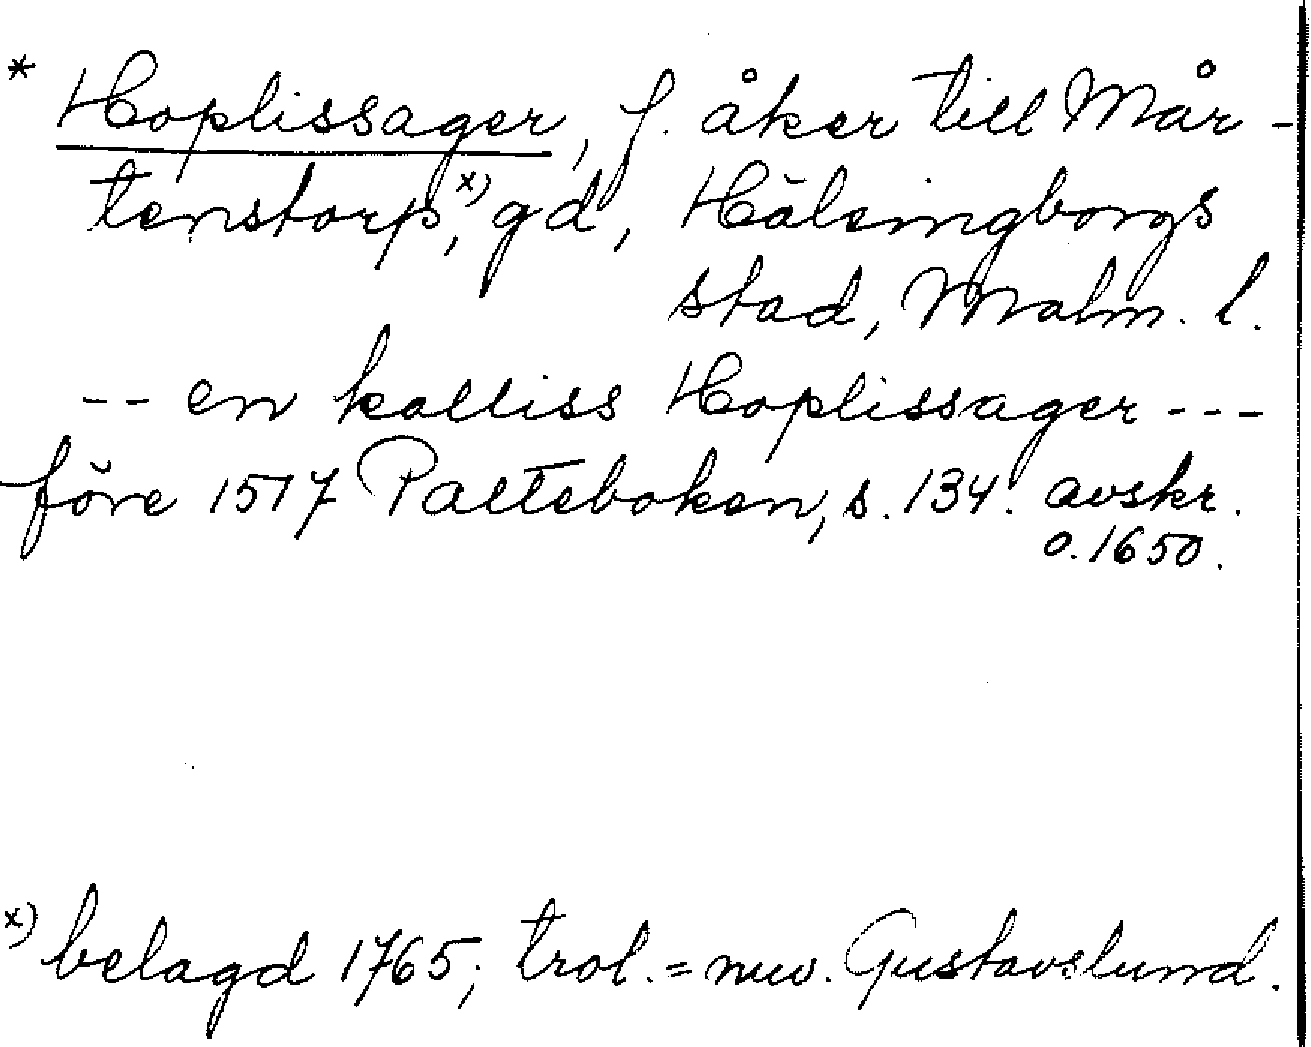 * Hoplissager, f. åker till Mår-
tenstorp,x) gd, Hälsingborgs
stad, Malm. l.
-- en kalliss Hoplissager ---
före 1517 Palteboken, s. 134. avskr.
o. 1650.
x) belagd 1765; trol. = nuv. Gustavslund.